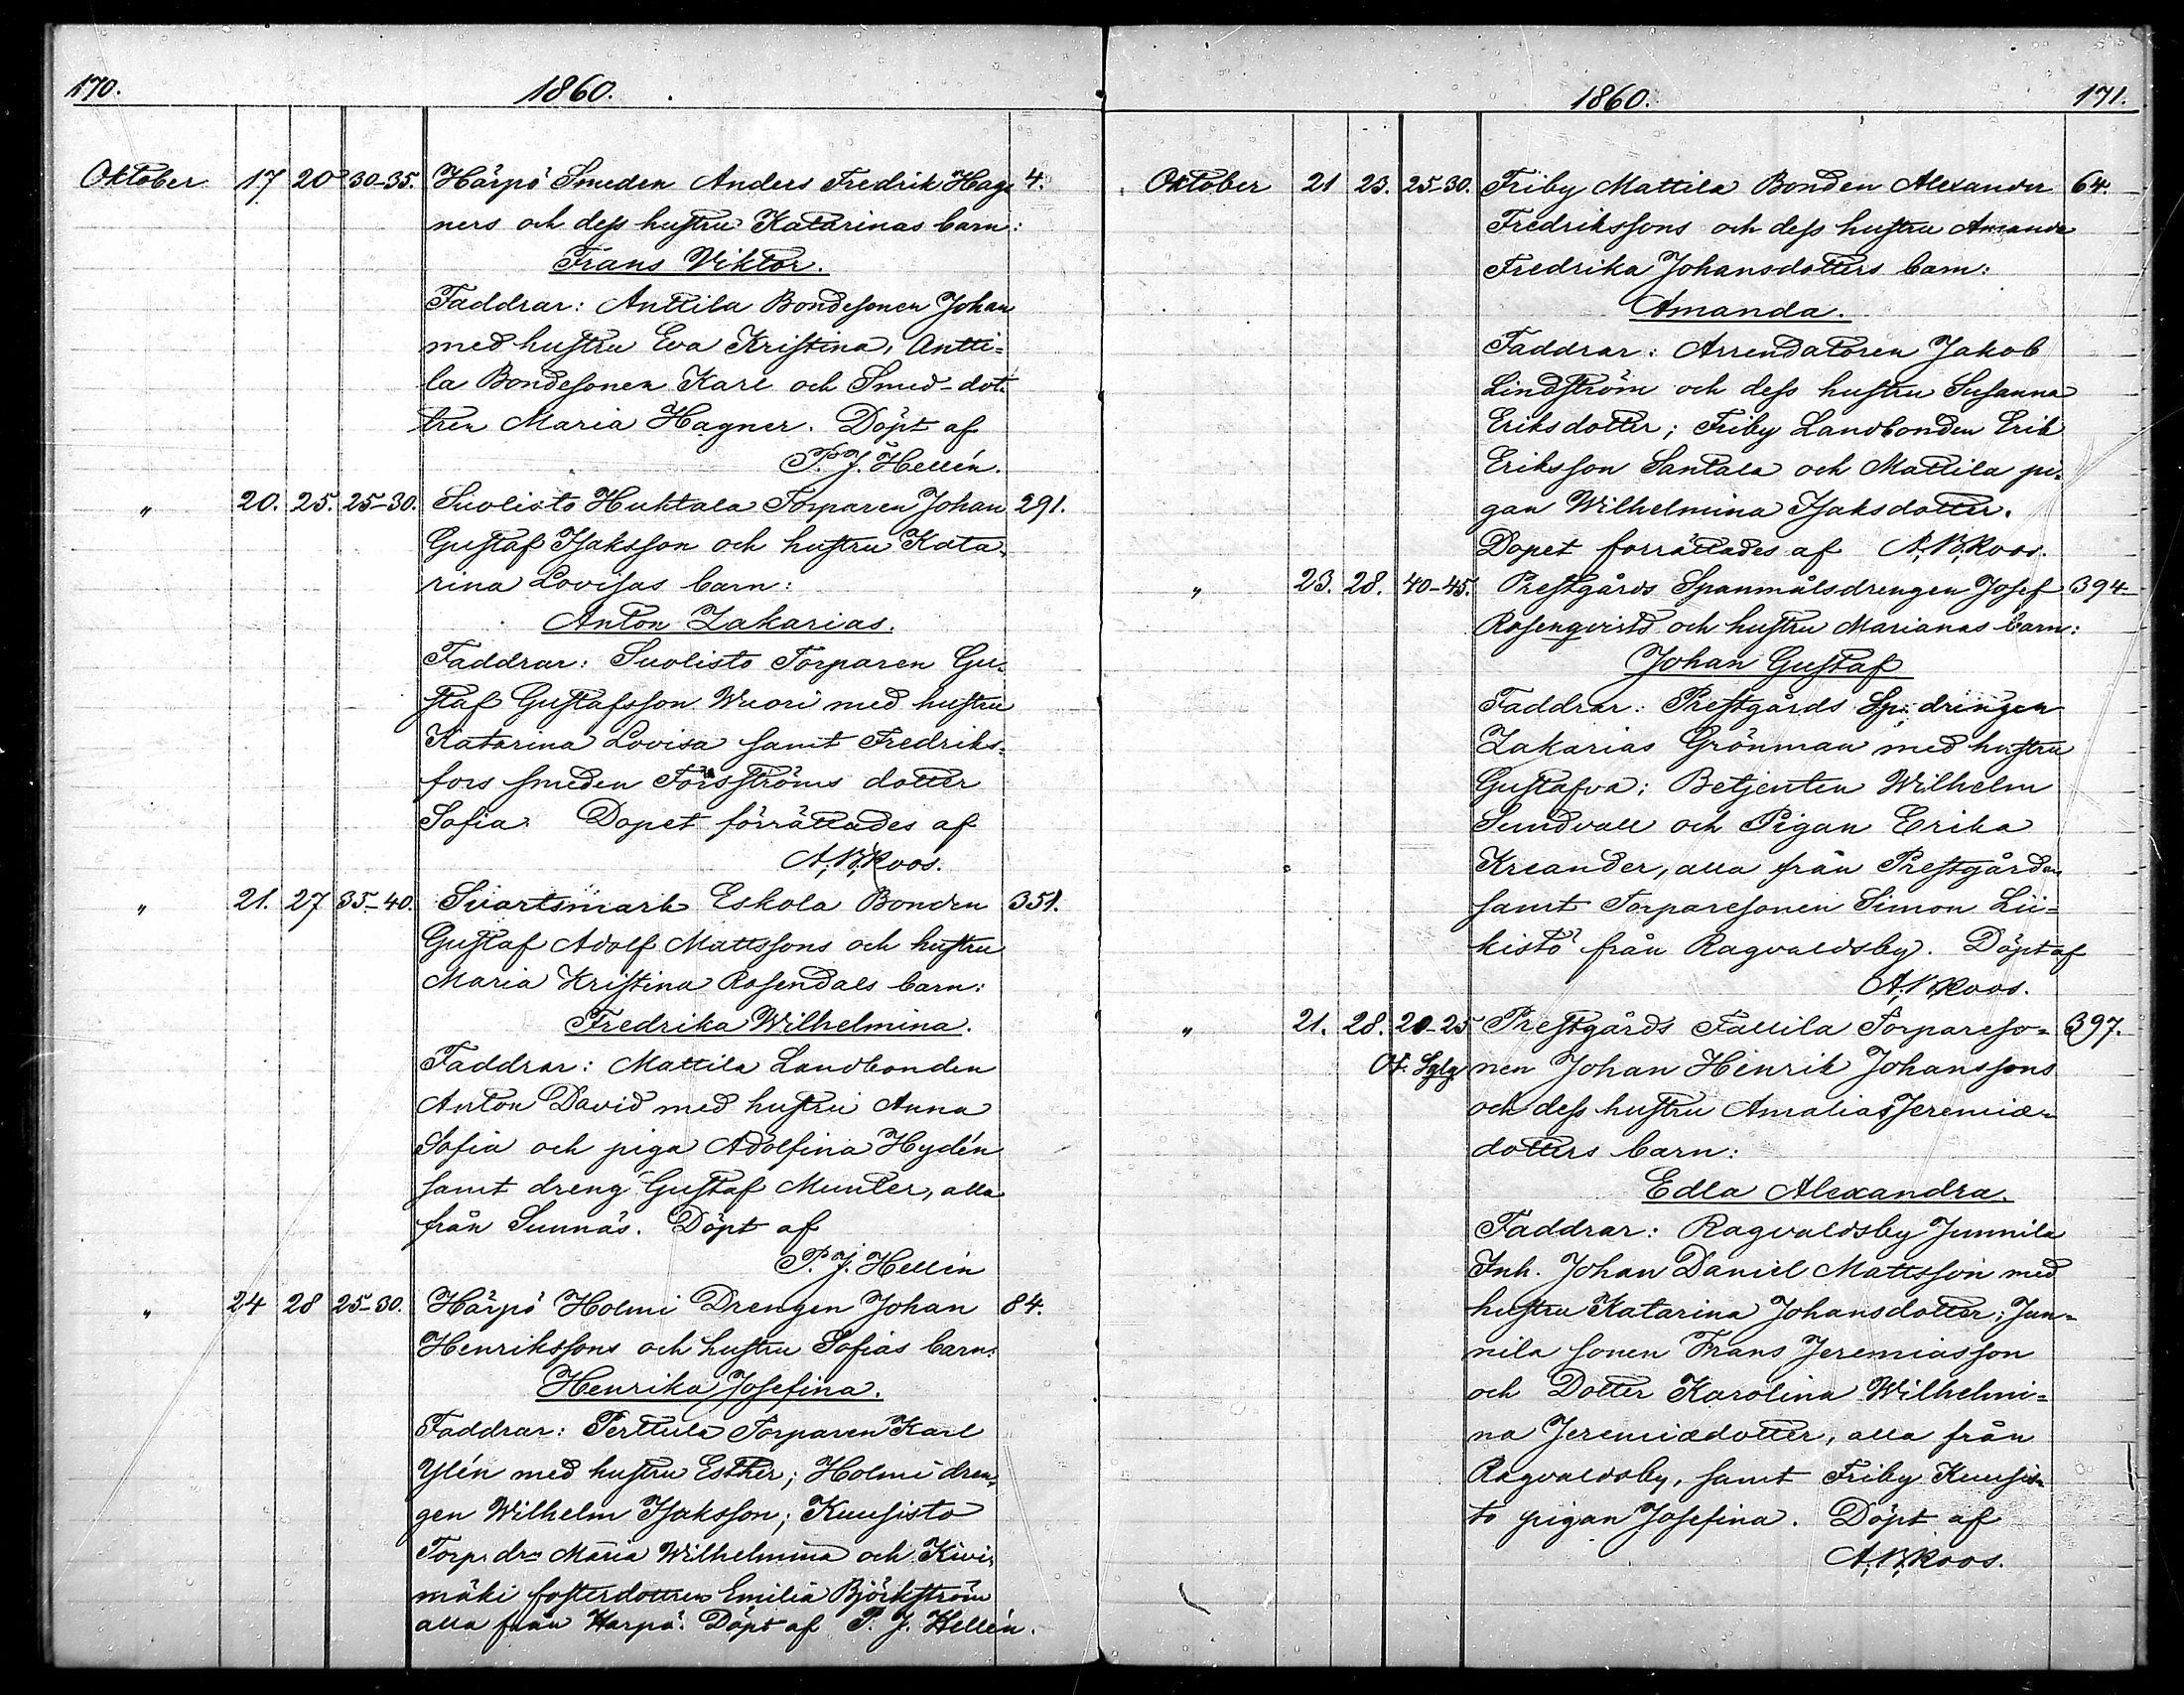 170.
1860.
Oktober 17 20 30-35. Härpö Smeden Anders Fredrik Hag= 4.
ners och dess hustru Katarinas barn:
Frans Viktor.
Faddrar: Anttila Bondesonen Johan
med hustru Eva Kristina, Antti=
la Bondesonen Karl och Smed-dot=
tren Maria Hagner. Döpt af
P. J. Hellén.
" 20. 25. 25-30. Suolisto Huktala Torparen Johan 291.
Gustaf Isaksson och hustru Kata=
rina Lovisas barn:
Anton Zakarias.
Faddrar: Suolisto Torparen Gu=
staf Gustafsson Wuori med hustru
Katarina Lovisa samt Fredriks=
fors smeden Forsströms dotter
Sofia. Dopet förrättades af
A. W. Roos.
" 21. 27 35-40. Svartsmark Eskola Bonden 351.
Gustaf Adolf Mattssons och hustru
Maria Kristina Rosendals barn:
Fredrika Wilhelmina.
Faddrar: Mattila Landbonden
Anton David med hustru Anna
Sofia och piga Adolfina Hydén
samt dreng Gustaf Munter, alla
från Sunnäs. Döpt af
P. J. Hellén
" 24 28 25-30. Härpö Holmi Drengen Johan 84.
Henrikssons och hustru Sofias barn:
Henrika Josefina.
Faddrar: Perttula Torparen Karl
Ylén med hustru Esther; Holmi dren=
gen Wilhelm Isaksson; Kuusisto
Torp. dr= Maria Wilhelmina och Kivi=
mäki fosterdottren Emilia Björkström
alla från Harpö. Döpt af P. J. Hellén.
1860.
171.
Oktober 21 23. 25-30. Friby Mattila Bonden Alexander 64.
Fredrikssons och dess hustru Amanda
Fredrika Johansdotters barn:
Amanda.
Faddrar: Arrendatoren Jakob
Lindström och dess hustru Susanna
Eriksdotter; Friby Landbonden Erik
Eriksson Santala och Mattila pi=
gan Wilhelmina Isaksdotter.
Dopet forrättades af A. W. Roos.
" 23. 28. 40-45. Prestgårds Spanmålsdrengen Josef 394.
Rosenqvists och hustru Marianas barn:
Johan Gustaf
Faddrar: Prestgårds Sp: drengen
Zakarias Grönman med hustru
Gustafva; Betjenten Wilhelm
Sundvall och Pigan Erika
Kreander, alla från Prestgården
samt Torparesonen Simon Lii=
kistö från Ragvaldsby. Döpt af
A. W. Roos.
" 21. 28. 20-25 Prestgårds Fallila Torpareso= 397.
nen Johan Henrik Johanssons
och dess hustru Amalias Jeremiæ=
dotters barn:
Edla Alexandra.
Faddrar: Ragvaldsby Junnila
Inh. Johan Daniel Mattsson med
hustru Katarina Johansdotter; Jun=
nila sonen Frans Jeremiasson
och Dotter Karolina Wilhelmi=
na Jeremiædotter, alla från
Ragvaldsby, samt Friby Kuusis=
to pigan Josefina. Döpt af
A. W. Roos.